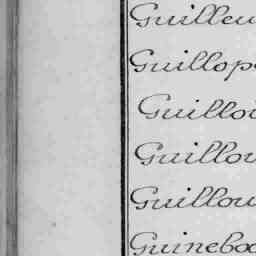 Guilleu
Guillop
Guillo
Guillou
Guillou
Guinebo